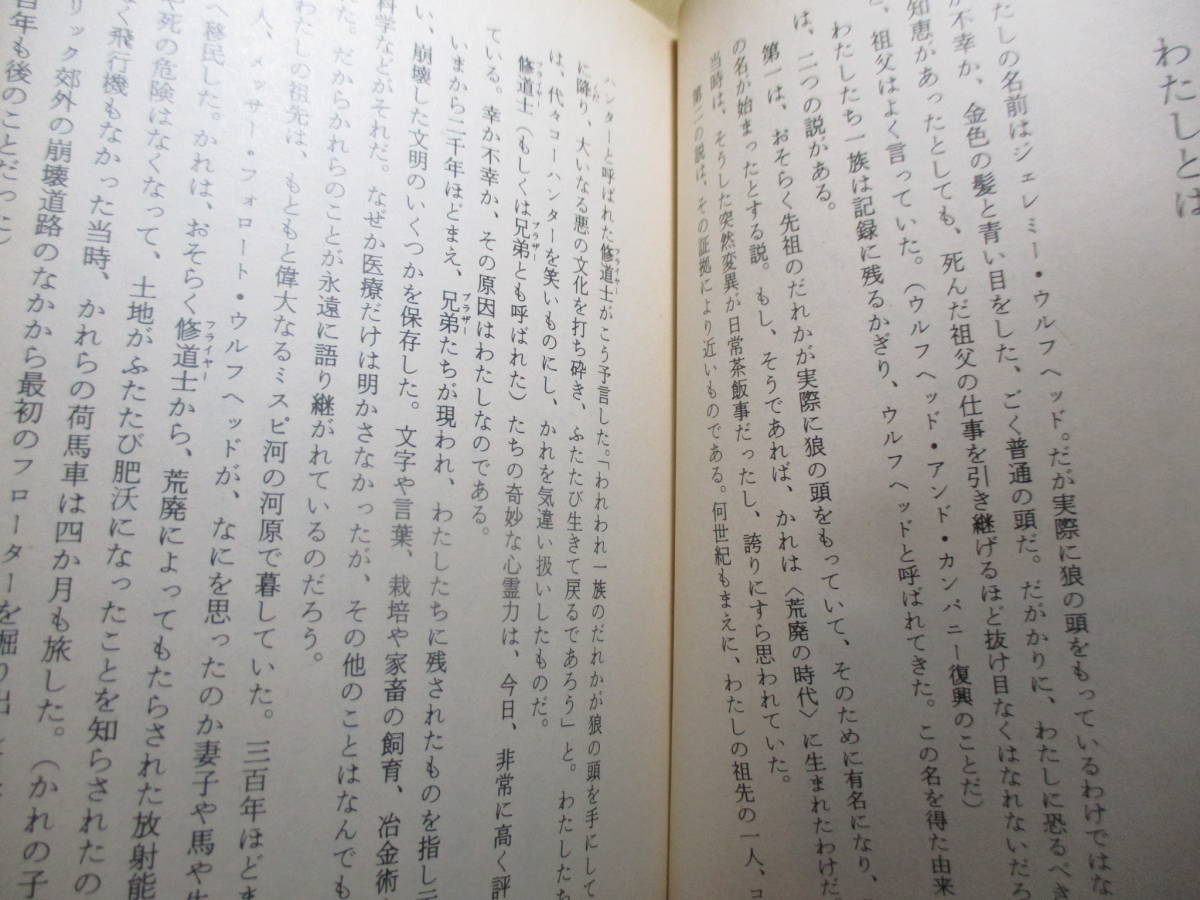 わたしとは
たしの名前はジェレミー・ウルフヘッド。だが実際に狼の頭をもっているわけではな
が不幸か、金色の髪と青い目をした、ごく普通の頭だ。だがかりに、わたしに恐るべき
知恵があったとしても、死んだ祖父の仕事を引き継げるほど抜け目なくはなれないだろ
と、祖父はよく言っていた。(ウルフヘッド・アンド・カンパニー復興のことだ)
わたしたち一族は記録に残るかぎり、ウルフヘッドと呼ばれてきた。この名を得た由来
は、二つの説がある。
第一は、おそらく先祖のだれかが実際に狼の頭をもっていて、そのために有名になり、
の名が始まったとする説。もし、そうであれば、かれは〈荒廃の時代〉に生まれたわけだ
当時は、そうした突然変異が日常茶飯事だったし、誇りにすら思われていた。
第二の説は、その証拠により近いものである。何世紀もまえに、わたしの祖先の一人、コ
ハンターと呼ばれた修道士がこう予言した。「われわれ一族のだれかが狼の頭を手にして
に降り、大いなる悪の文化を打ち砕き、ふたたび生きて戻るであろう」と。わたしたち
は、代々コーハンターを笑いものにし、かれを気違い扱いしたものだ。
修道士(もしくは兄弟とも呼ばれた)たちの奇妙な心霊力は、今日、非常に高く評
ている。幸か不幸か、その原因はわたしなのである。
いまから二千年ほどまえ、兄弟たちが現われ、わたしたちに残されたものを指し示
い、崩壊した文明のいくつかを保存した。文字や言葉、栽培や家畜の飼育、冶金術
科学などがそれだ。なぜか医療だけは明かさなかったが、その他のことはなんでも
た。だからかれらのことが永遠に語り継がれているのだろう。
わたしの祖先は、もともと偉大なるミスピ河の河原で暮していた。三百年ほどま
人、メッサー・フォロート・ウルフヘッドが、なにを思ったのか妻子や馬や
へ移民した。かれは、おそらく修道士から、荒廃によってもたらされた放射能
や死の危険はなくなって、土地がふたたび肥沃になったことを知らされたの
なく飛行機もなかった当時、かれらの荷馬車は四か月も旅した。(かれの子
リック郊外の崩壊道路のなかから最初のフローターを掘り出し
百年も後のことだった)